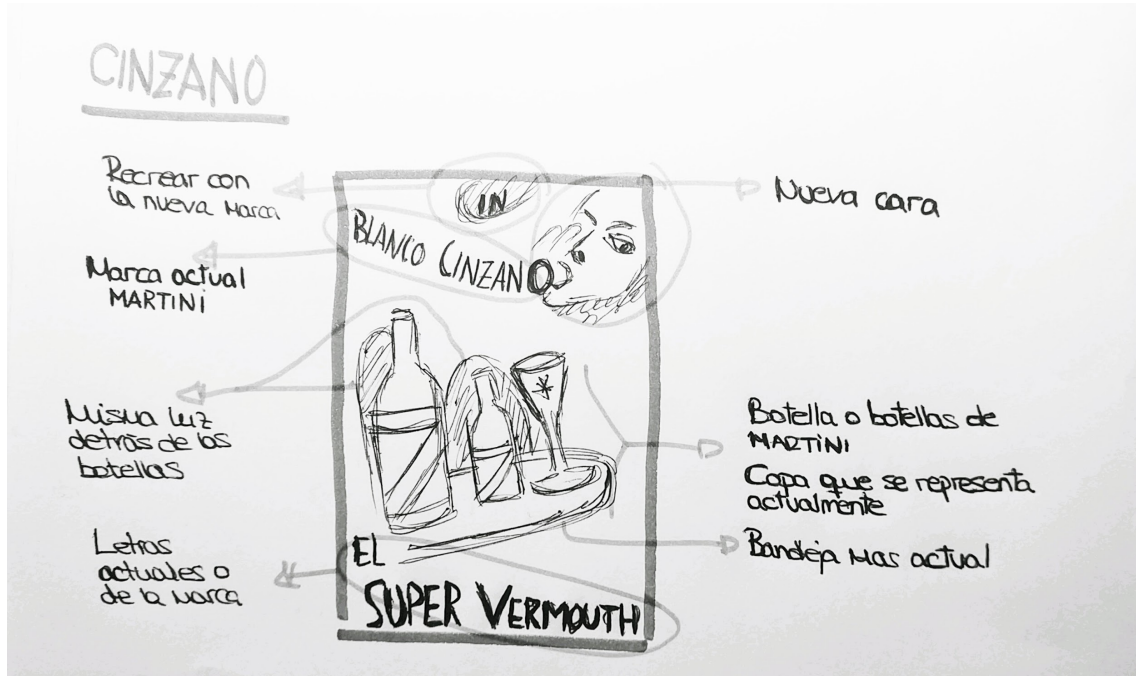 CINZANO
Recrear con
la nueva marca
Marca actual
MARTINI
Misma luz
detrás de las
botellas
Letras
actuales o
de la marca
IN
BLANCO CINZANO
EL
SUPER VERMOUTH
Nueva cara
Botella o botellas de
MARTINI
Copa que se representa
actualmente
Bandeja mas actual